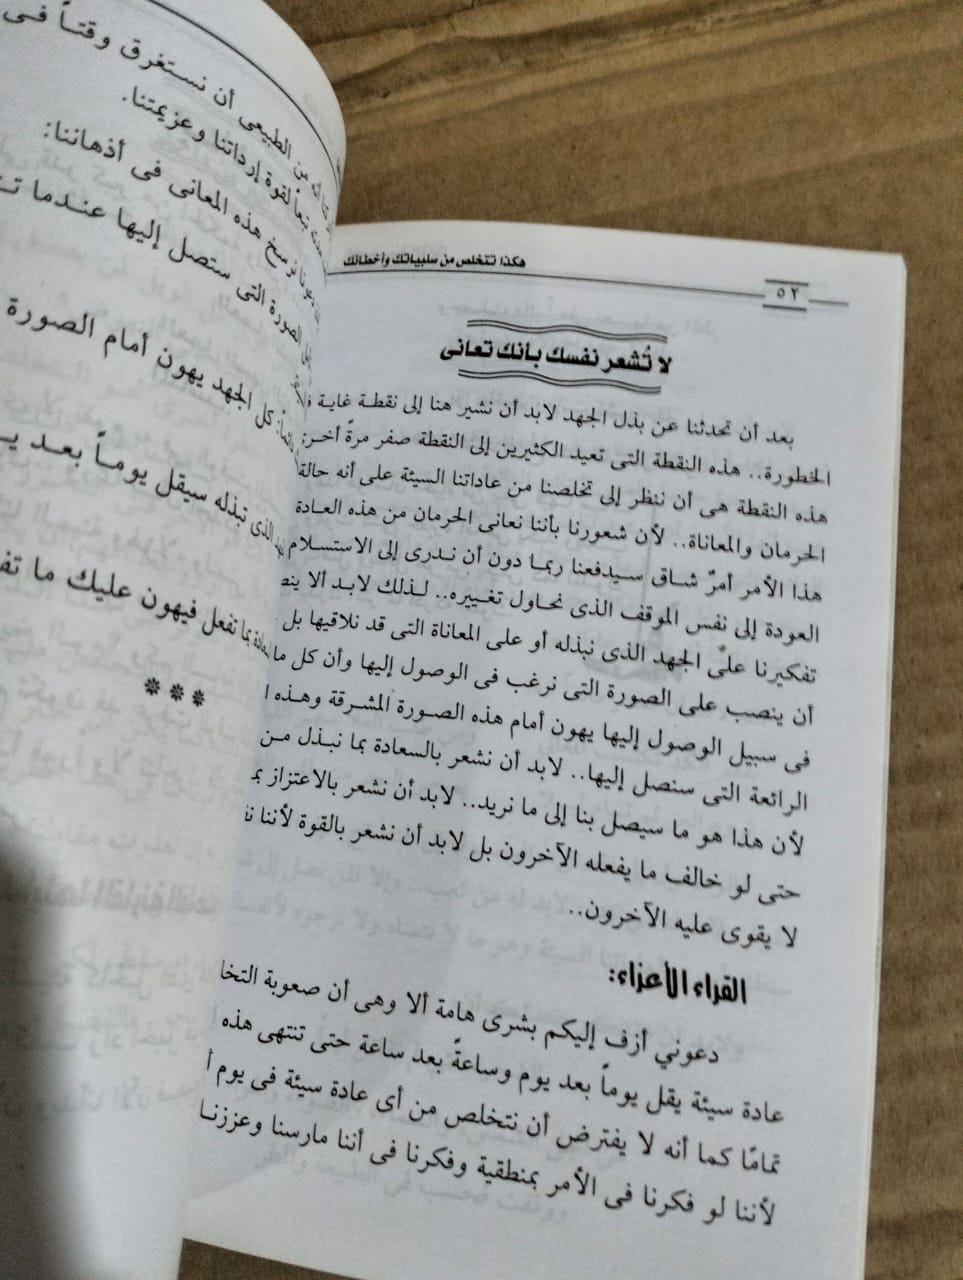 هكذا تتخلص من سلبياتك وأخطائك
٥٢
لا تُشعر نفسك بأنك تعانى
بعد أن تحدثنا عن بذل الجهد لابد أن نشير هنا إلى نقطة غاية
الخطورة.. هذه النقطة التى تعيد الكثيرين إلى النقطة صفر مرةً
هذه النقطة هى أن ننظر إلى تخلصنا من عاداتنا السيئة على أنه حالة
الحرمان والمعاناة.. لأن شعورنا بأننا نعانى الحرمان من هذه العادة
هذا الأمر أمرٌ شاق سيدفعنا ربما دون أن ندرى إلى الاستسلام
العودة إلى نفس الموقف الذى نحاول تغييره.. لذلك لابد ألا
تفكيرنا على الجهد الذى نبذله أو على المعاناة التى قد نلاقيها بل
أن ينصب على الصورة التى نرغب فى الوصول إليها وأن كل ما
فى سبيل الوصول إليها يهون أمام هذه الصورة المشرقة وهذه
الرائعة التى سنصل إليها.. لابد أن نشعر بالسعادة بما نبذل من
لأن هذا هو ما سيصل بنا إلى ما نريد.. لابد أن نشعر بالاعتزاز
حتى لو خالف ما يفعله الآخرون بل لابد أن نشعر بالقوة لأننا
لا يقوى عليه الآخرون..
القراء الأعزاء:
دعوني أزف إليكم بشرى هامة ألا وهى أن صعوبة
عادة سيئة يقل يوماً بعد يوم وساعةً بعد ساعة حتى تنتهى هذه
تمامًا كما أنه لا يفترض أن نتخلص من أى عادة سيئة فى يوم
لأننا لو فكرنا فى الأمر بمنطقية وفكرنا فى أننا مارسنا وعززنا
أنه من الطبيعى أن نستغرق وقتاً فى
تبعاً لقوة إرداتنا وعزيمتنا.
نرسخ هذه المعانى فى أذهاننا:
الصورة التى ستصل إليها عندما
كل الجهد يهون أمام الصورة
الذى تبذله سيقل يوماً بعد
بما تفعل فيهون عليك ما
***